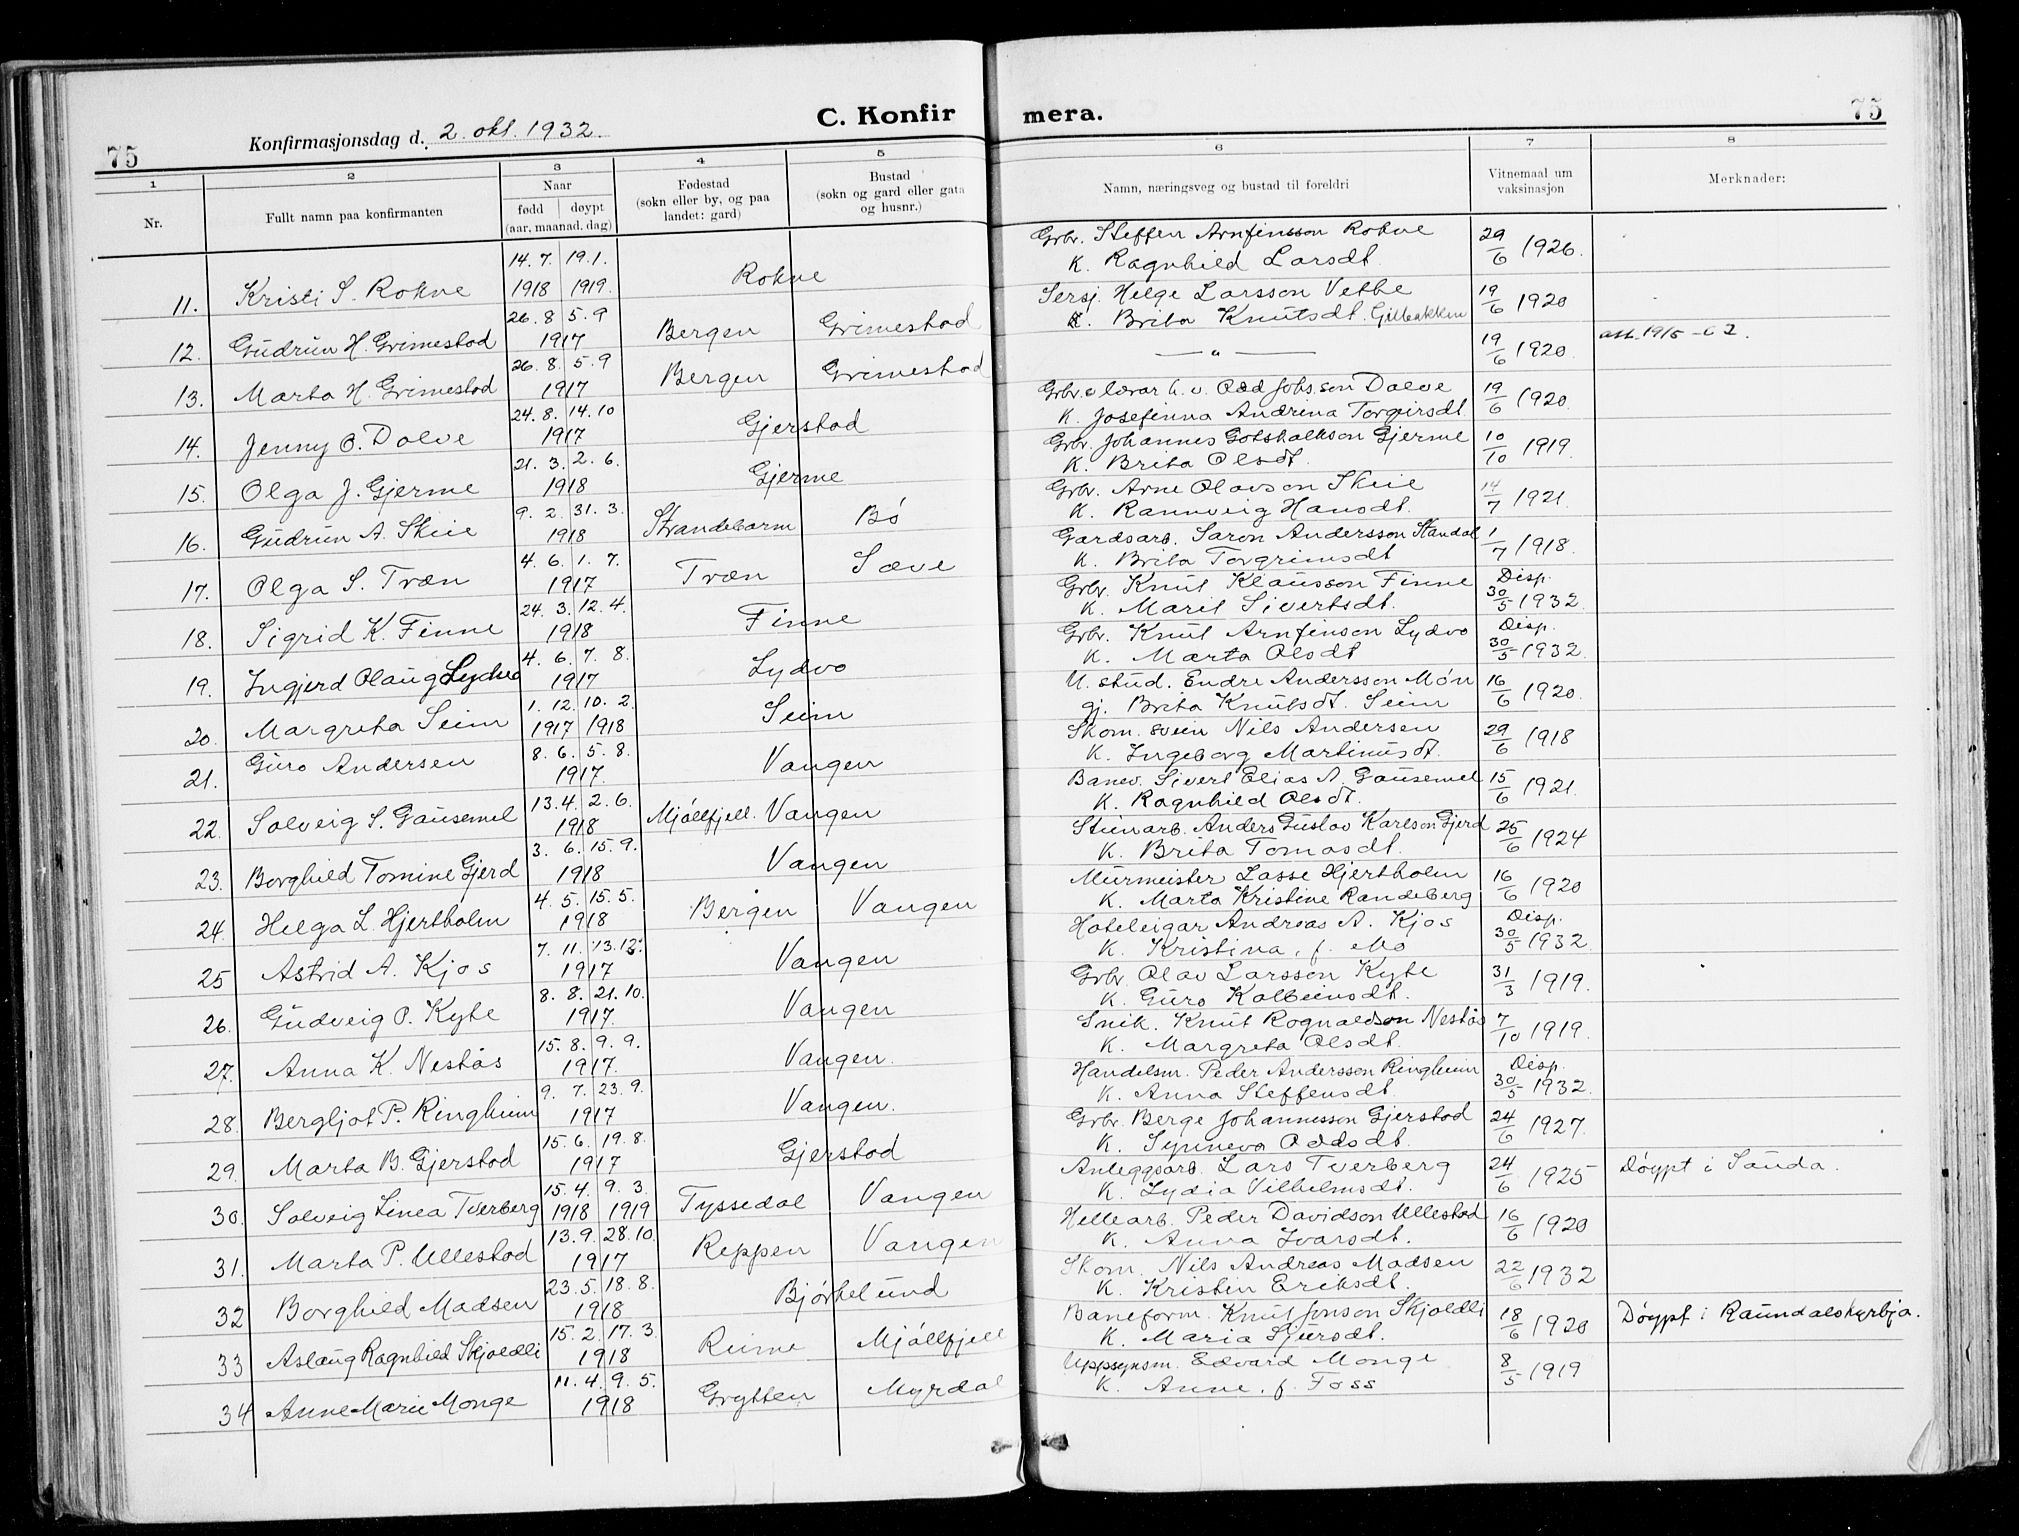 75
Konfirmasjonsdag d. 2. okt. 1932.
C. Konfirmera.
75
1 2 3 4 5 6 7 8
Nr.
Fullt namn paa konfirmanten
Naar
fødd | døypt
(aar, maanad. dag)
Fødestad
(sokn eller by, og paa
landet: gard)
Bustad
(sokn og gard eller gata
og husnr.)
Namn, næringsveg og bustad til foreldri
Vitnemaal um
vaksinasjon
Merknader:
11. Kristi S. Rokne 14.7. 1918 19.1. 1919. Rokne Grbr. Steffen Arnfinsson Rokne K. Ragnhild Larsdt. 29/6 1926.
12. Gudrun H. Grimestad 26.8 5.9 1917 Bergen Grimestad Sersj. Helge Larsson Vethe K. Brita Knutsdt. Gilbakken 19/6 1920
13. Marta H. Grimestad 26.8. 5.9 1917 Bergen Grimestad — „ — 19/6 1920.
14. Jenny O. Dalve 24.8. 14.10 1917 Gjerstad Grbr. o lærar h. v. Odd Johsson Dalve K. Josefinna Andrina Torgeirsdt 19/6 1920.
15. Olga J. Gjerme 21.3. 2.6. 1918 Gjerme Grbr. Johannes Gotskalkson Gjerme K. Brita Olsdt. 10/10 1919.
16. Gudrun A. Skeie 9.2. 31.3. 1918 Strandebarm Bø Grbr. Arne Olavson Skeie K. Rannveig Hansdt. 14/7 1921
17. Olga S. Træn 4.6. 1.7. 1917 Træn Sæve Gardsarb. Saron Andersson Standal K. Brita Torgrimsdt 1/7 1918.
18. Sigrid K. Finne 24.3. 12.4. 1918 Finne Grbr. Knut Klausson Finne K. Marit Sivertsdt. Disp. 30/5 1932.
19. Ingjerd Olaug Lydvo 4.6. 7.8. 1917 Lydvo Grbr. Knut Arnfinson Lydvo K. Marta Olsdt Disp. 30/5 1932.
20. Margreta Seim 1.12. 1917 10.2. 1918 Seim U. stud. Endre Andersson Møn gj. Brita Knutsdt. Seim 16/6 1920.
21. Guro Andersen 8.6. 5.8. 1917. Vangen Skom. svein Nils Andersen K. Ingeborg Martinusdt. 29/6 1918
22. Solveig S. Gausemel 13.4. 2.6. 1918 Mjøllfjell. Vangen Banev. Sivert Elias A. Gausemel K. Ragnhild Olsdt. 15/6 1921.
23. Borghild Tomine Gjerd 3.6. 15.9. 1918 Vangen Steinarb. Anders Gustav Karlson Gjerd K. Brita Tomasdt. 25/6 1924
24. Helga L. Hjertholm 4.5. 15.5. 1918 Bergen Vangen Murmeister Lasse Hjertholm K. Marta Kristine Randeberg 16/6 1920
25 Astrid A. Kjos 7.11. 13.12. 1917 Vangen Hoteleigar Andreas A. Kjos K. Kristina, f. Mo Disp. 30/5 1932.
26. Gudveig O. Kyte 8.8. 21.10. 1917. Vangen Grbr. Olav Larsson Kyte K. Guro Kolbeinsdt. 31/3 1919.
27. Anna K. Nestås 15.8. 9.9. 1917. Vangen. Snik. Knut Rognaldson Nestås K. Margreta Olsdt. 7/10 1919.
28. Bergljot P. Ringheim 9.7. 23.9. 1917 Vangen. Handelsm. Peder Andersson Ringheim K. Anna Steffensdt. Disp. 30/5 1932.
29. Marta B. Gjerstad 15.6. 19.8. 1917 Gjerstad Grbr. Berge Johannesson Gjerstad K. Synneva Oddsdt. 24/6 1927.
30. Solveig Linea Tverberg 15.4. 1918 9.3. 1919 Tyssedal Vangen Anleggsarb. Lars Tverberg K. Lydia Vilhelmsdt. 24/6 1925 Døypt i Sauda.
31. Marta P. Ullestad 13.9. 28.10. 1917 Reppen Vangen Hellearb. Peder Davidson Ullestad K. Anna Ivarsdt. 16/6 1920
32 Borghild Madsen 23.5. 18.8. 1918 Bjørkelund Skom. Nils Andreas Madsen K. Kristin Eriksdt. 22/6 1932
33 Aslaug Ragnhild Skjoldli 15.2. 17.3. 1918 Reime Mjøllfjell Baneform. Knut Jonson Skjoldli K. Maria Sjursdt. 18/6 1920 Døypt i Raundalskyrkja.
34 Anne Marie Monge 11.4. 9.5. 1918 Grytten Myrdal Uppsynsm. Edvard Monge K. Anne, f. Foss 8/5 1919